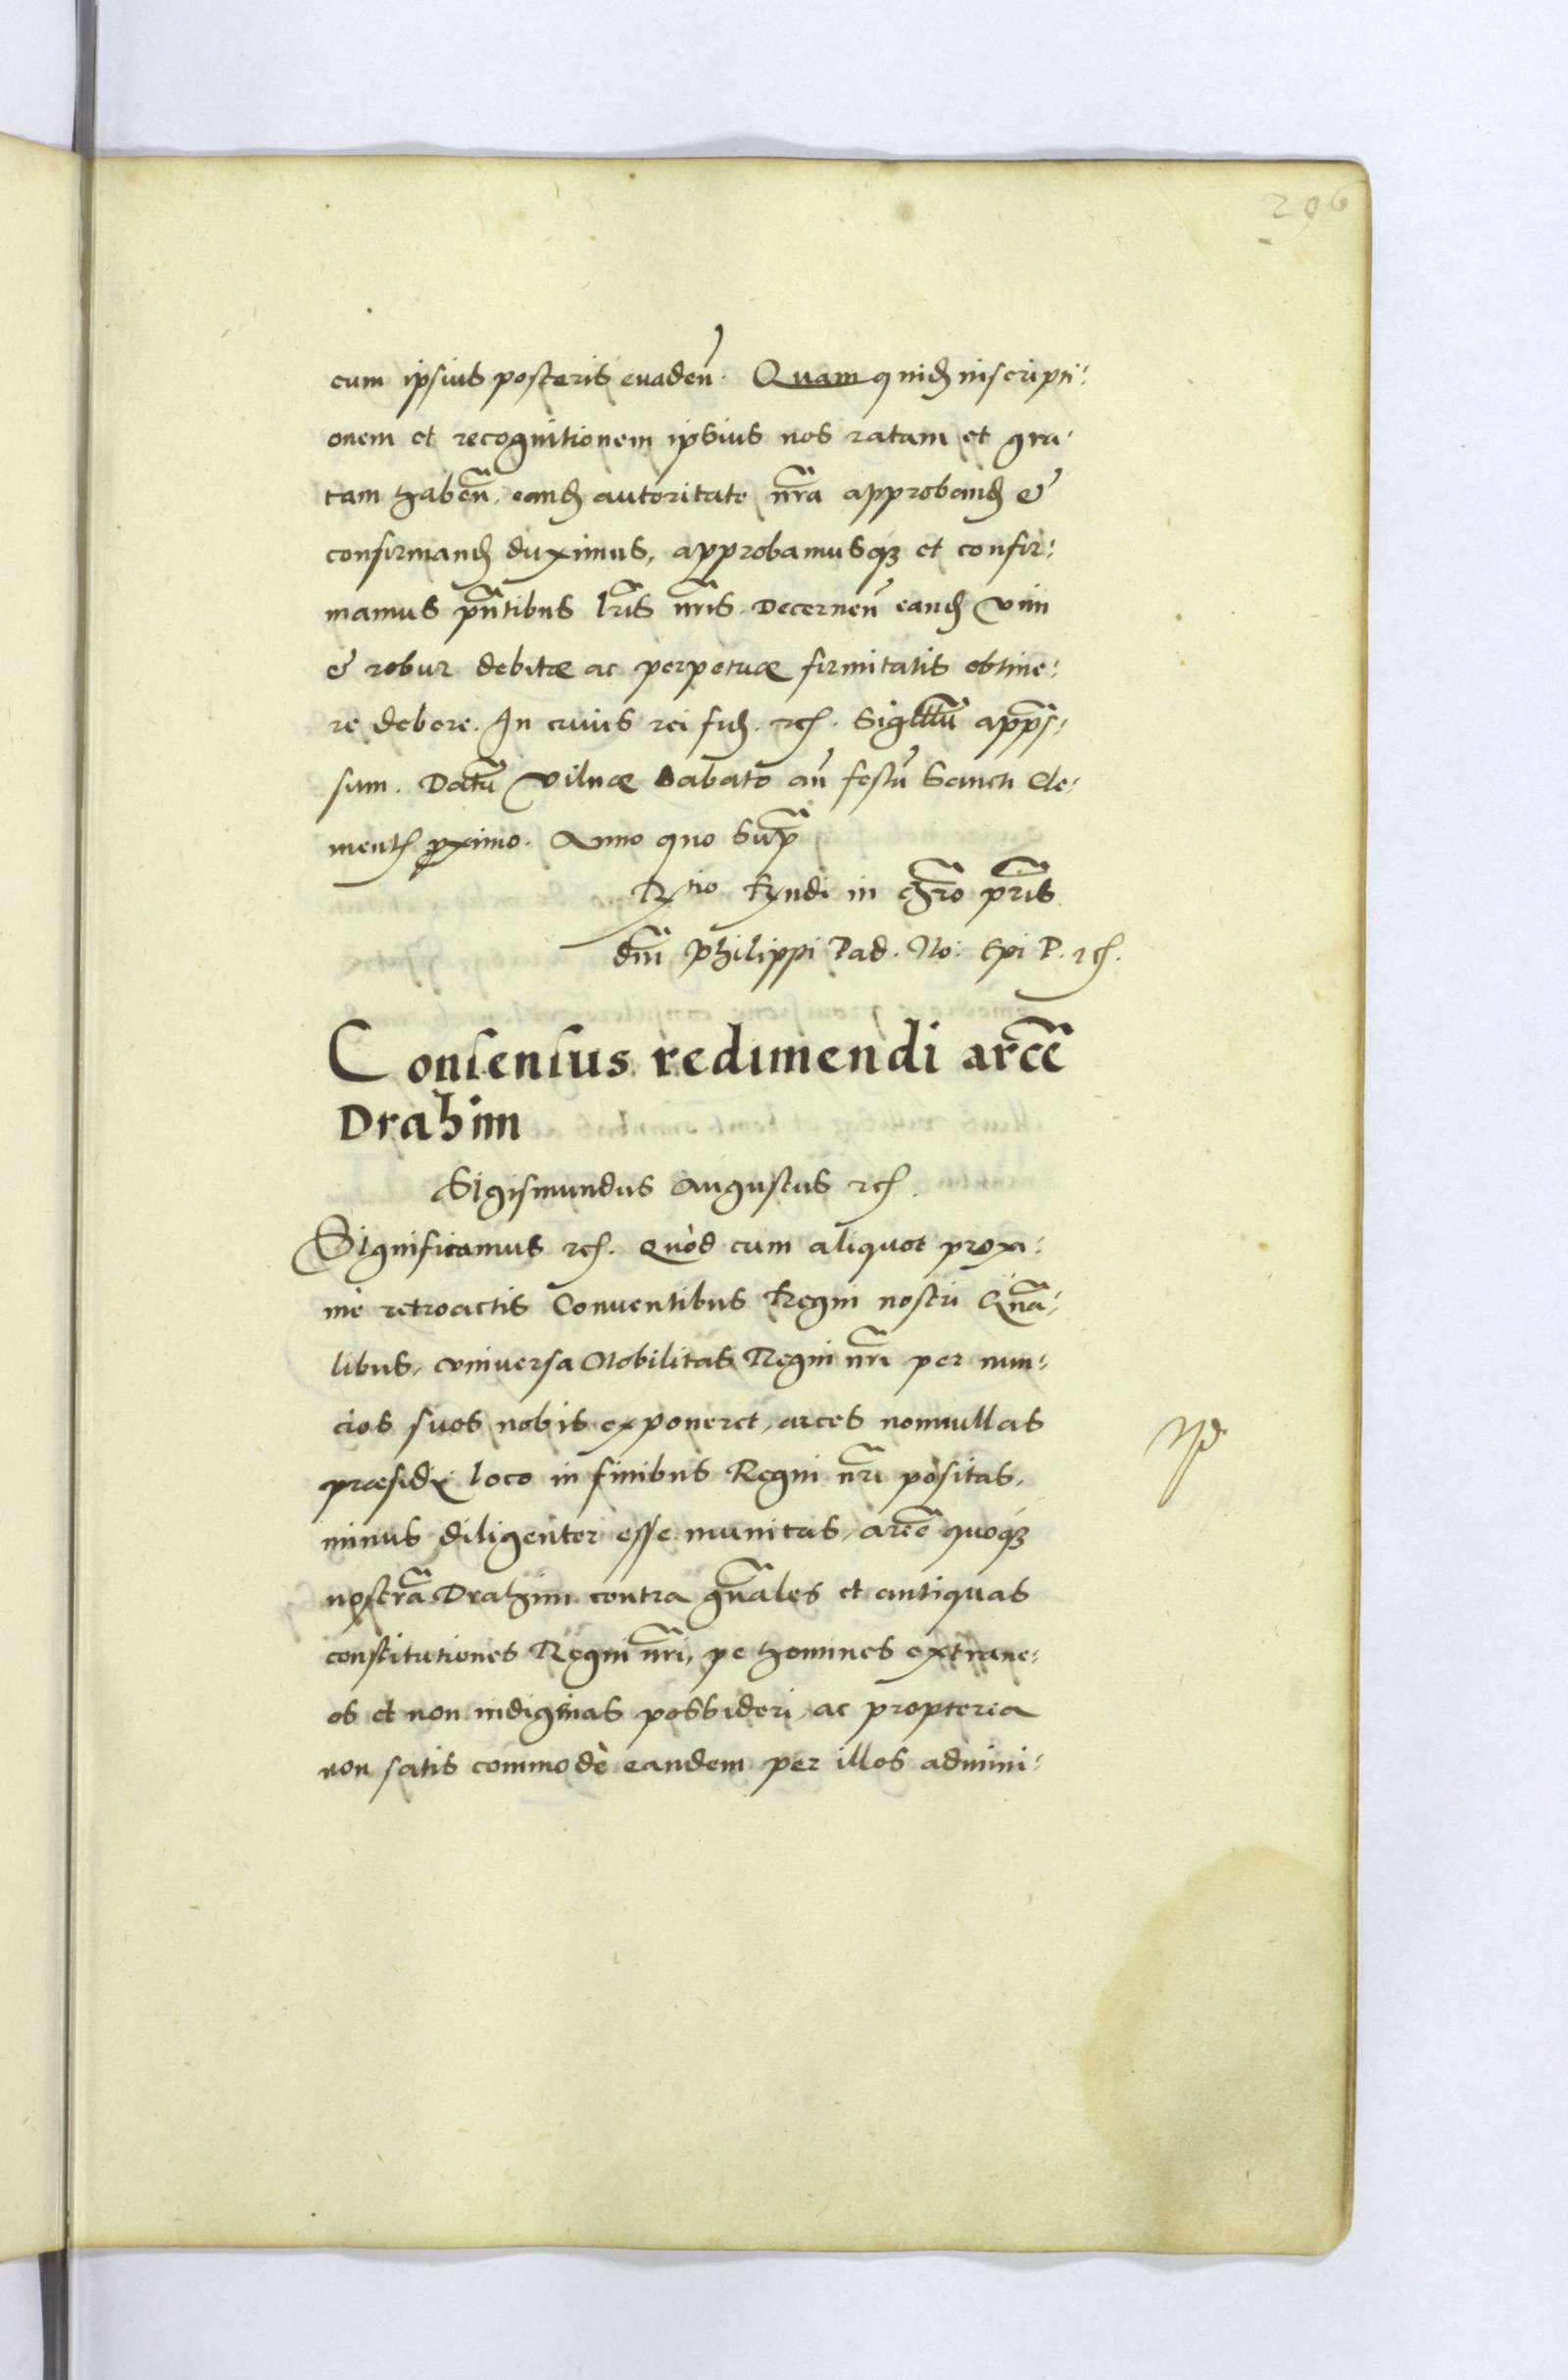 296
cum ipsius posteris euadeń. Quam quidē inscripti:
onem et recognitionem ipsius nos ratam et gra:
tam habeñ, eandē autoritate nr̃a approbandā &
confirmandā duximus, approbamusqꝫ et confir:
mamus pñtibus lr̃is nr̃is. Decerneń eandē vim
& robur debitæ ac perpetuæ firmitatis obtine:
re debere. In cuius rei fidē. etc. Sigillũ appẽs:
sum. Datũ Vilnæ Sabato añ festũ Sancti Cle:
mentis proximo. Anno quo sup̃
R^tio R^xndi in Chr̃o pr̃is
dñi Philippi Pad. No: Epi P. etc.
Consensus redimendi arcẽ
Drahim
Sigismundus Augustus etc.
Significamus etc. Quòd cum aliquot proxi:
mè retroactis Conuentibus Regni nostri gña:
libus, vniuersa Nobilitas Regni nr̃i per nun:
cios suos nobis exponeret, arces nonnullas
præsidij loco in finibus Regni nr̃i positas,
minus diligenter esse munitas, arcẽ quoqꝫ
nostrã Drahim contra gñales et antiquas
constitutiones Regni nr̃i, pe homines extrane:
os et non indiginas possideri, ac propterea
non satis commodè eandem per illos admini: